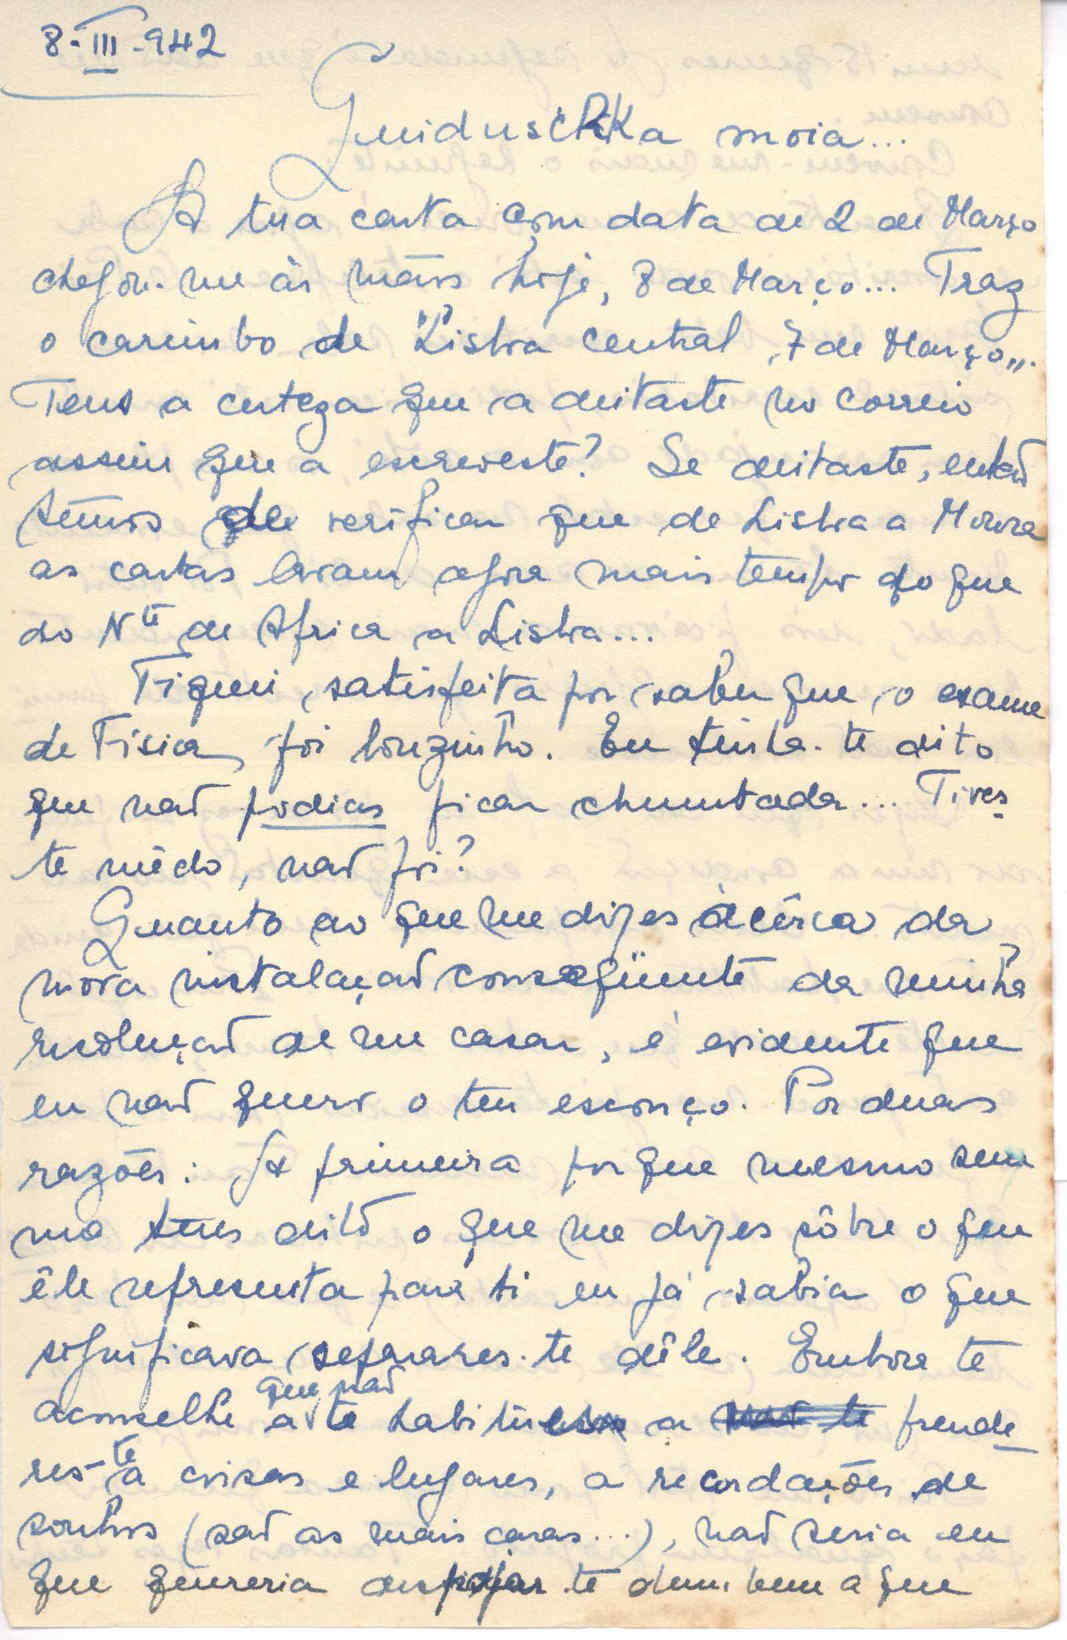 8-III-942
Guiduschka moia...
A tua carta com data de 2 de Março
chegou-me às mãos hoje, 8 de Março... Traz
o carimbo de "Lisboa Central, 7 de Março".
Tens a certeza que a deitaste no correio
assim que a escreveste? Se deitaste, entao
temos de verificar que de Lisboa a Moura
as cartas levam agora mais tempo do que
do Nte de Africa a Lisboa...
Fiquei satisfeita por saber que o exame
de Fisica foi bonzinho. Eu tinha-te dito
que não podias ficar chumbada... Tives-
te mêdo, não foi?
Quanto ao que me dizes àcêrca da
nova instalação conseqüente da minha
resolução de me casar, é evidente que
eu não quero o teu esconço. Por duas
razões: A primeira porque mesmo sem
mo teres dito o que me dizes sôbre o que
êle representa para ti eu já sabia o que
significava separares-te dêle. Embora te
aconselhe a que não te habitues a prende-
res-te a coisas e lugares, a recordações de
sonhos (são as mais caras...), não seria eu
que quereria despojar-te dum bem a que